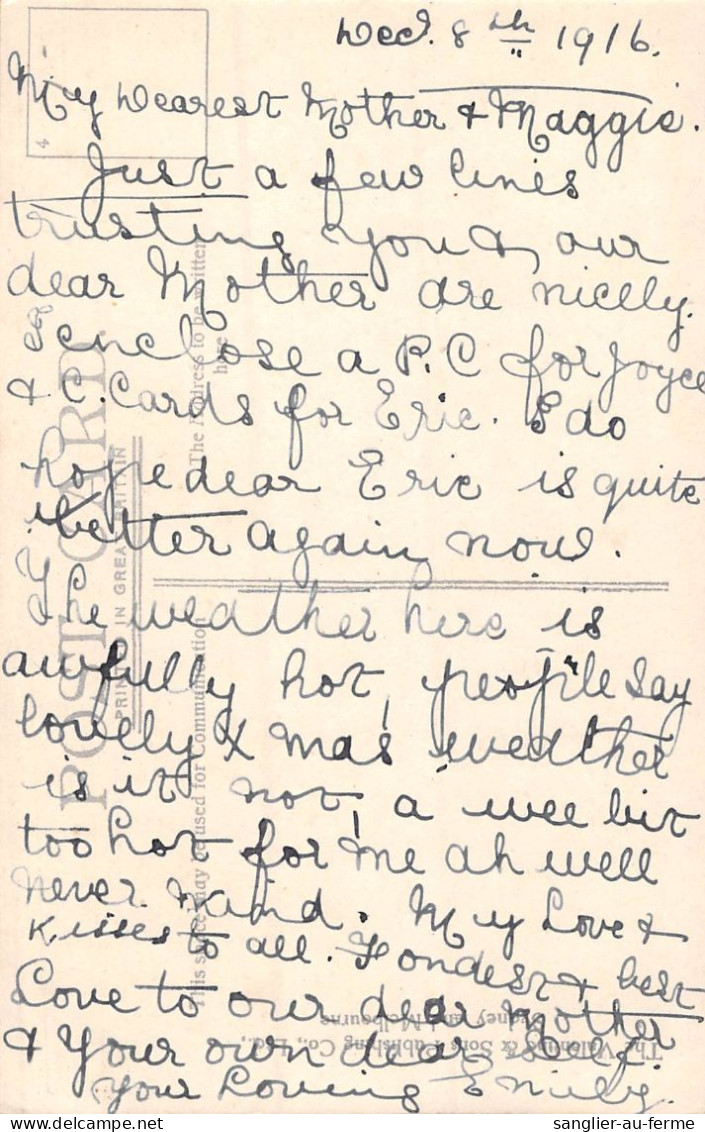 Dec. 8th 1916.
My Dearest Mother & Maggie.
Just a few lines
trusting you & our
dear Mother are nicely.
enclose a P.C for Joyce
& C. Cards for Eric. I do
hope dear Eric is quite
better again now.
The weather here is
awfully hot, people say
lovely Xmas weather
is it not, a wee bit
too hot for me ah well
never mind. My Love &
Kisses to all. Fondest & best
Love to our dear Mother
& Your own dear Self.
Your Loving Emily.
4
POST CARD
PRINTED IN GREAT BRITAIN
This space may be used for Communication
The Address to be written
here
The Valentine & Sons Publishing Co., Ltd.,
Sydney and Melbourne
sanglier-au-ferme